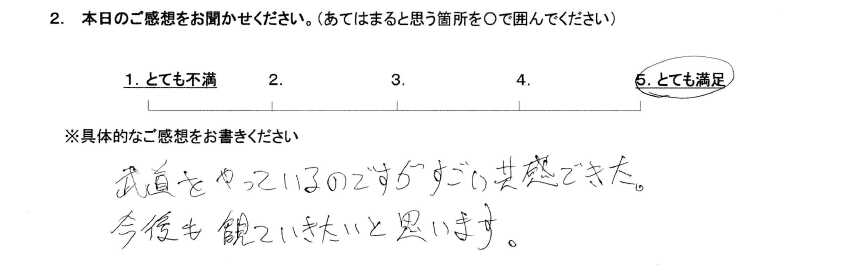 2. 本日のご感想をお聞かせください。(あてはまると思う箇所を〇で囲んでください)
1. とても不満 2. 3. 4. 5. とても満足
※具体的なご感想をお書きください
武道をやっているのですがすごい共感できた。
今後も観ていきたいと思います。